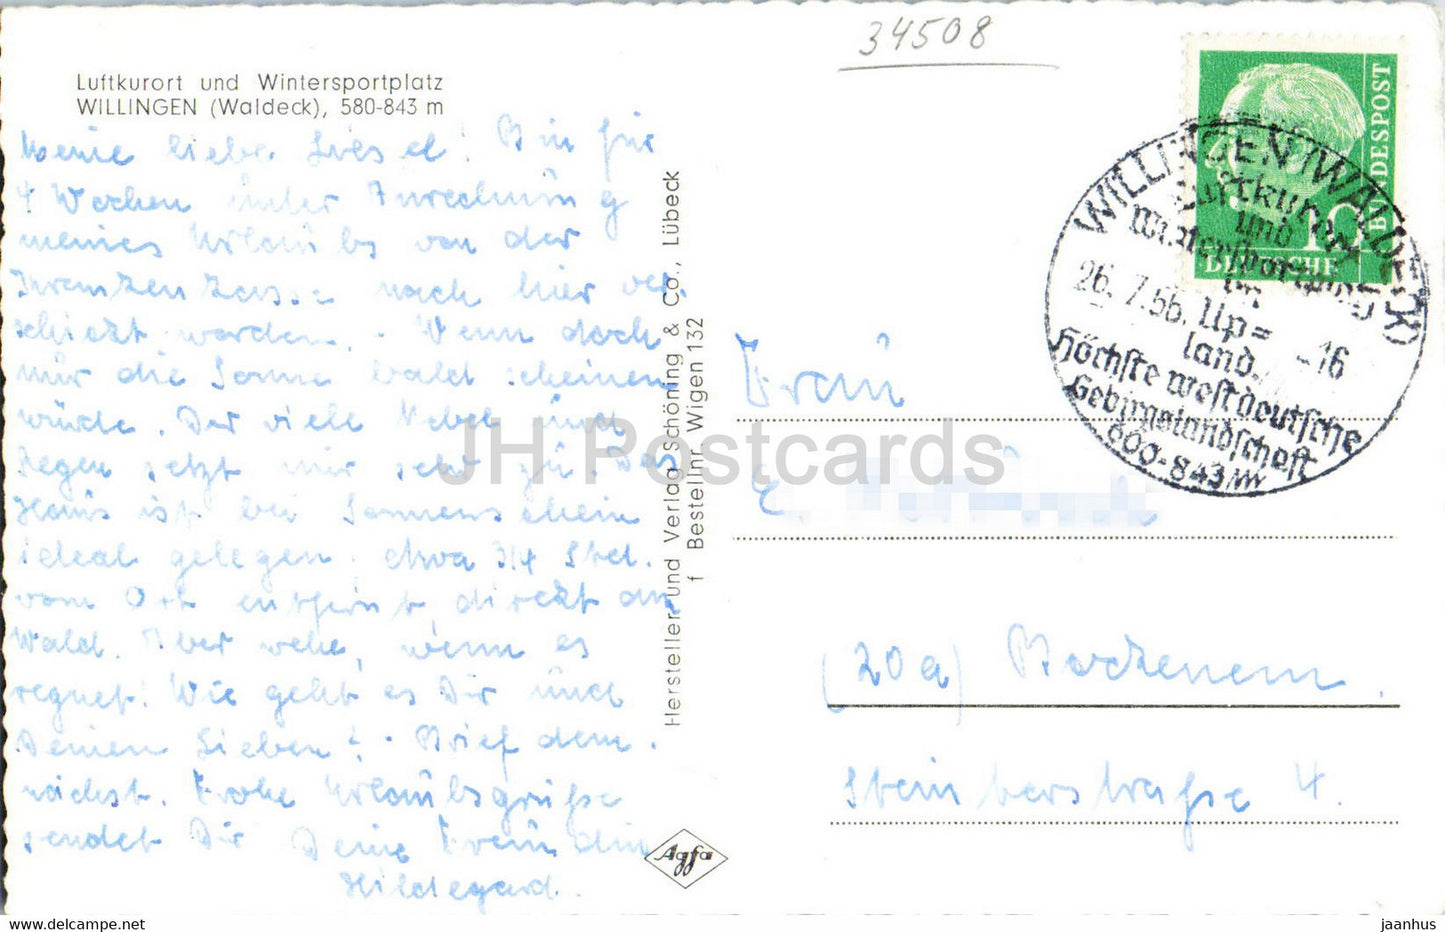 34508
Luftkurort und Wintersportplatz
WILLINGEN (Waldeck), 580-843 m
Meine liebe Liesel! Bin für
4 Wochen unter Zurechnung
meines Urlaubs von der
Krankenkasse nach hier ver-
schickt worden. - Wenn doch
nur die Sonne bald scheinen
würde. Der viele Nebel und
Regen setzt mir sehr zu. Das
Haus ist bei Sonnenschein
ideal gelegen, etwa 3/4 Std.
vom Ort entfernt, direkt am
Wald. Aber wehe, wenn es
regnet! Wie geht es Dir und
Deinen Lieben? - Brief dem-
nächst. Frohe Urlaubsgrüße
sendet Dir Deine Freundin
Hildegard.
Hersteller und Verlag Schöning & Co., Lübeck
f Bestellnr. Wigen 132
Agfa
DEUTSCHE
BUNDESPOST
10
WILLINGEN (WALDECK)
Luftkurort
und
Wintersportplatz
im
26. 7.56. Up= -16
land.
Höchste westdeutsche
Gebirgslandschaft
800-843 m
Frau
E.
(20a) Bockenem.
Steinbergstraße 4.
JH Postcards
www.delcampe.net
jaanhus